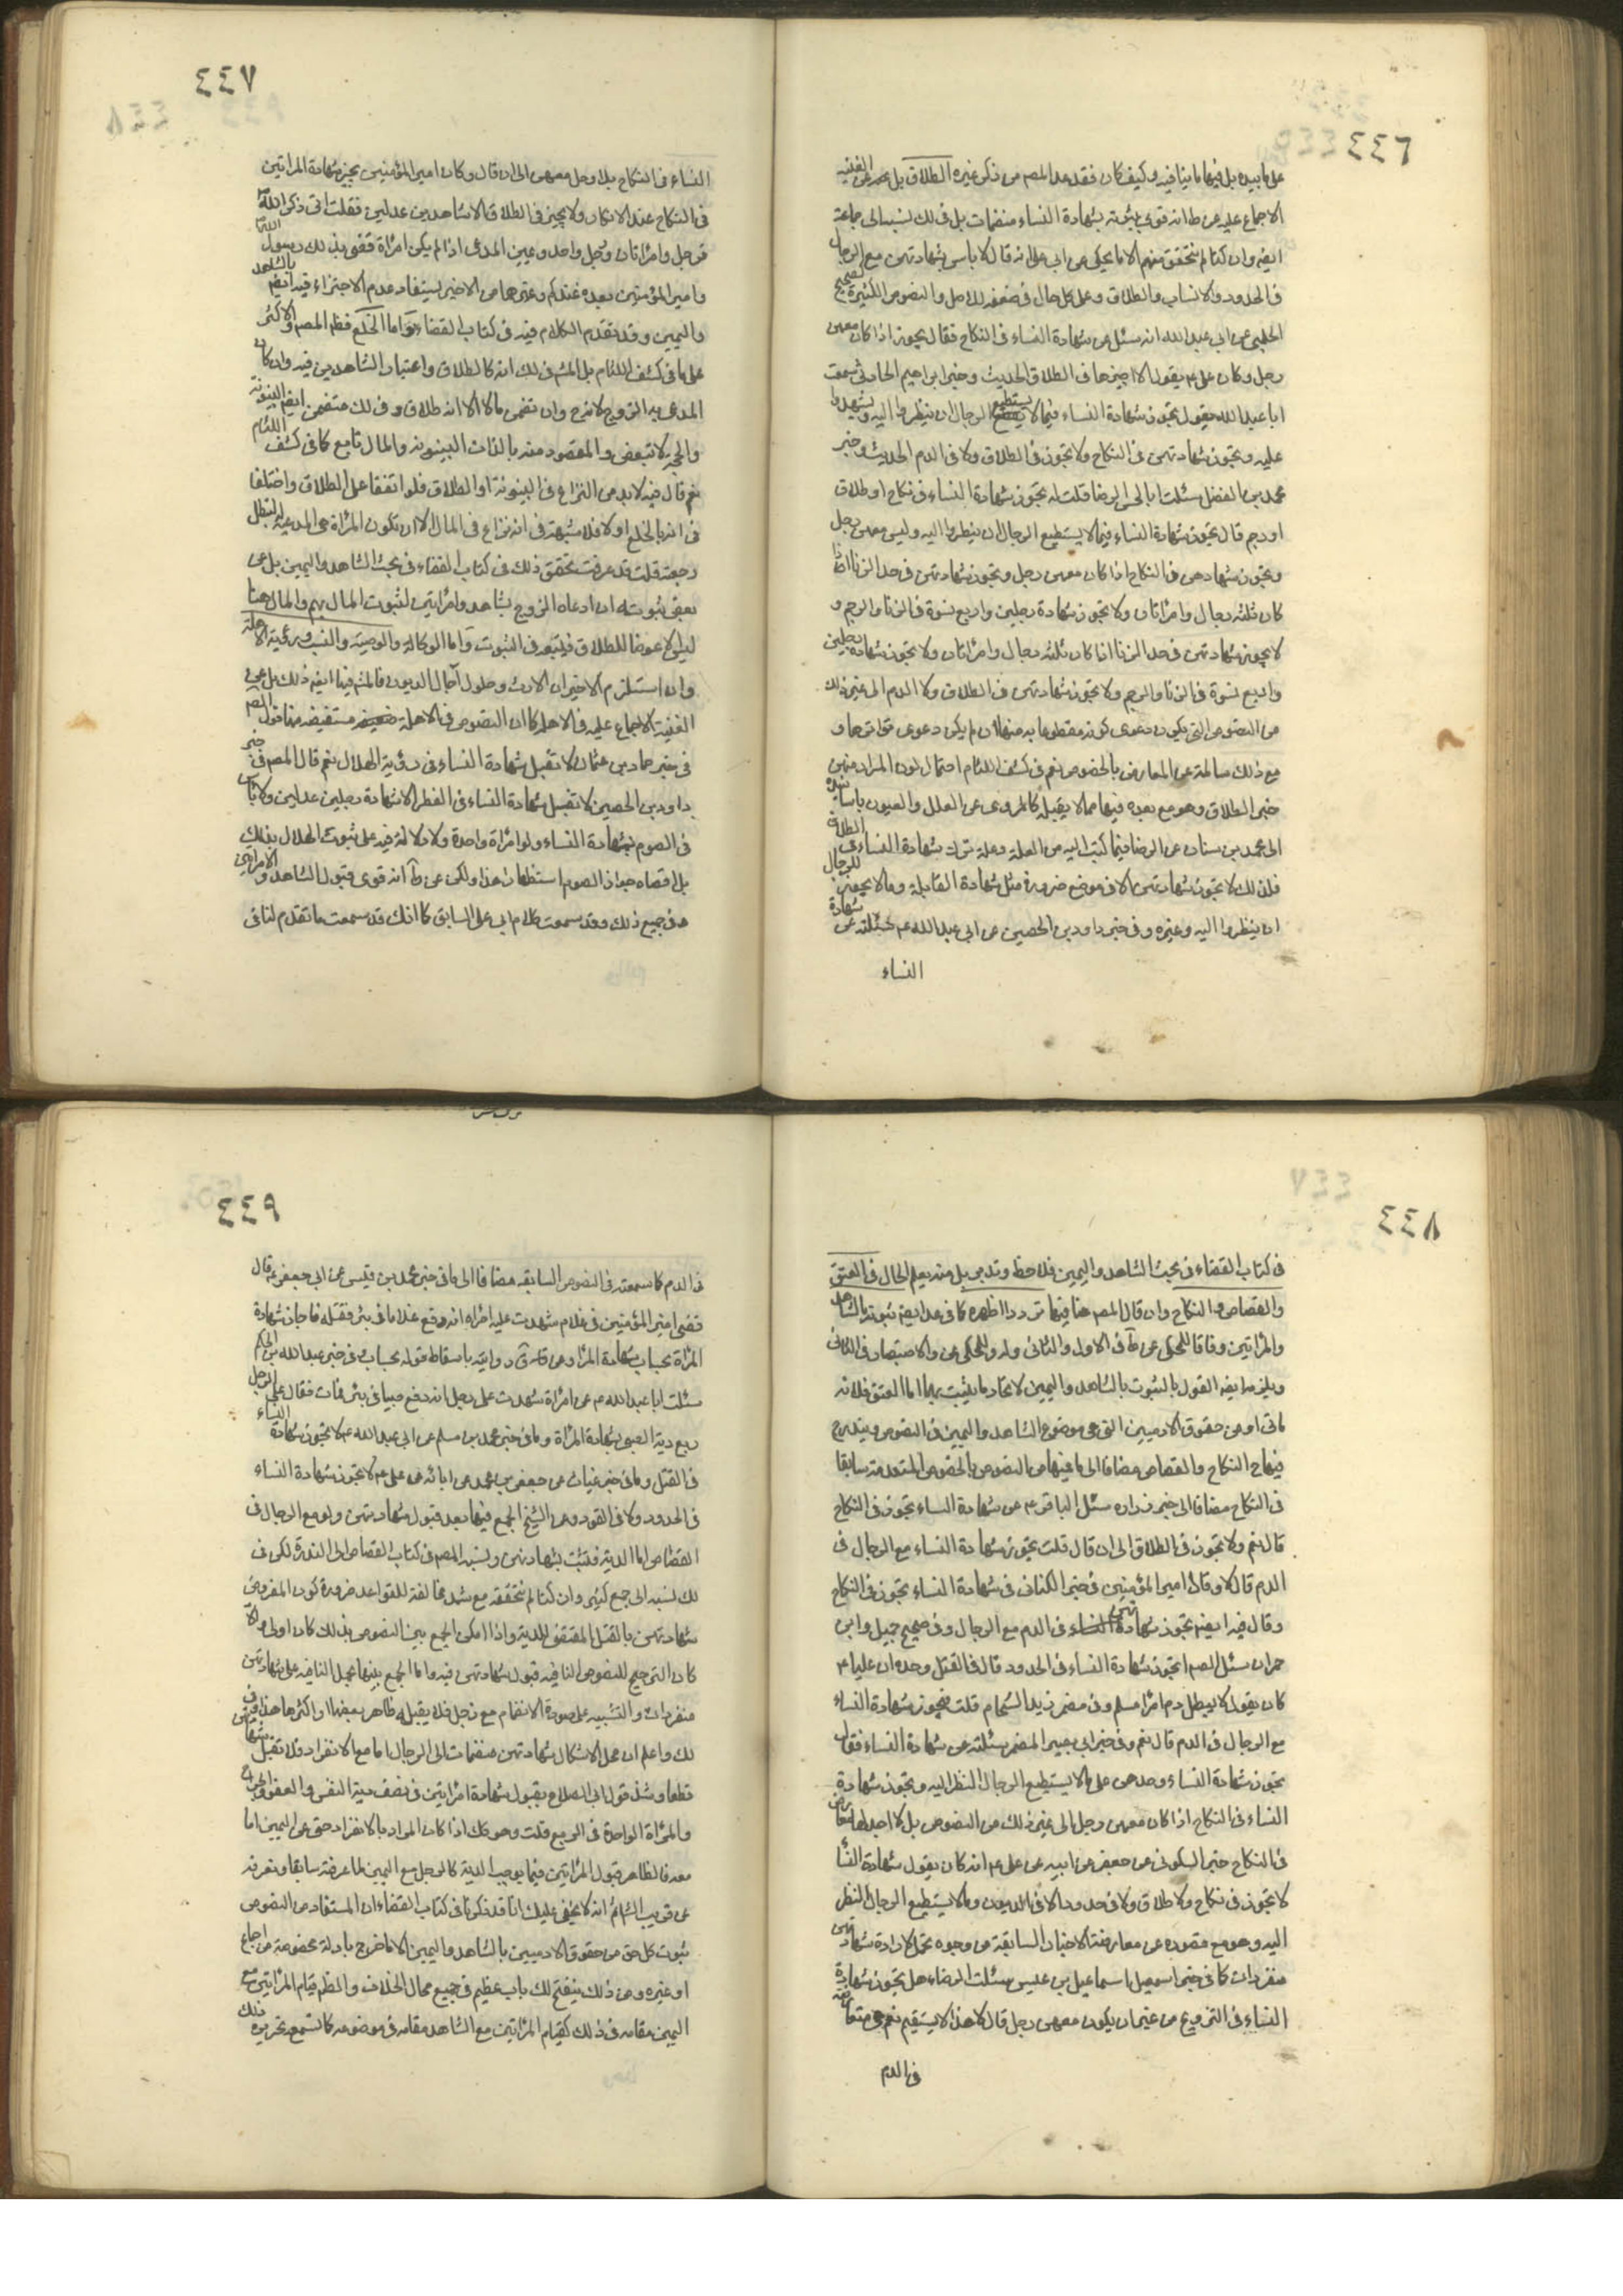 ٤٤٦
على ما بيده بل فيها ما ينافيه وكيف كان فقد عد المصم من ذكر غيره الطلاق بل عن الغنيه
الاجماع عليه عن ط انه قوى ثبوته بشهادة النساء منضمات بل في لك نسبه الى جماعة
ايضم وان كنا لم نتحقق منهم الا ما يحكى عن ابى على انه قال لا باس بشهادتهن مع الرجال
فى الحدود والانساب والطلاق وعلى كل حال فى ضعفه للاصل والنصوص الكثيرة صحيح
الحلبى عن ابى عبد الله انه سئل عن شهادة النساء فى النكاح فقال يجوز اذا كان معهن
رجل وكان على ع يقول لا اجيزها فى الطلاق الحديث وخبر ابراهيم الحارثى سمعت
ابا عبد الله يقول تجوز شهادة النساء فيما لا يستطيع الرجال ان ينظروا اليه ويشهدوا
عليه وتجوز شهادتهن فى النكاح ولا تجوز فى الطلاق ولا فى الدم الحديث وخبر
محمد بن الفضل سئلت ابا الحسن الرضا قلت له تجوز شهادة النساء فى نكاح او طلاق
او رجم قال تجوز شهادة النساء فيما لا يستطيع الرجال ان ينظروا اليه وليس معهن رجل
وتجوز شهادهن فى النكاح اذا كان معهن رجل وتجوز شهادتهن فى حد الزنا اذا
كان ثلثه رجال وامرأتان ولا تجوز شهادة رجلين واربع نسوة فى الزنا والرجم و
لا يجوز شهادتهن فى حد الزنا اذا كان ثلثه رجال وامرأتان ولا تجوز شهادة رجلين
واربع نسوة فى الزنا والرجم ولا تجوز شهادتهن فى الطلاق ولا الدم الى غير ذلك
من النصوص التى يكون دعوى كونه مقطوعا به منها ان لم يكن دعوى تواترها و
مع ذلك سالمة عن المعارض بالخصوص نعم فى كشف اللثام احتمال لون المراد منهن
خبر الطلاق وهو مع بعده فيها مما لا يقبله كالمروى عن العلل والعيون باسانيده
الى محمد بن سنان عن الرضا فيما كتب اليه من العلة وعلة ترك شهادة النساء فى الطلاق
فلذلك لا تجوز شهادتهن الا فى موضع ضرورة مثل شهادة القابلة وما لا يجوز للرجال
ان ينظروا اليه وغيره وفى خبر داود بن الحصين عن ابى عبد الله ع سئلته عن شهادة
النساء
٤٤٧
النساء فى النكاح بلا رجل معهن الى ان قال وكان امير المؤمنين يجيز شهادة المراتين
فى النكاح عند الانكار ولا يجيز فى الطلاق الا شاهدين عدلين فقلت انى ذكر الله
فرجل وامراتان ورجل واحد ويمين المدعى اذا لم يكن امرأة قضى بذلك رسول الله
وامير المؤمنين بعده عندكم وغيرها من الاخير يستفاد عدم الاجتزاء فيه ايضم بالشاهد
واليمين وقد تقدم الكلام فيه فى كتاب القضاء واما الخلع فظم المصم والاكثر
على ما فى كشف اللثام بل المشم فى لك انه كالطلاق واعتبار الشاهدين فيه وان كان
المدعى به الزوج لا نه وان تضمن مالا الا انه طلاق وفى لك متضمن ايضم البينونة
والحجة لا تتبعض والمقصود منه بالذات البينونه والمال تابع كما فى كشف اللثام
نعم قال فيه لا بد من النزاع فى البينونة او الطلاق فلو اتفقا على الطلاق واختلفا
فى انه بالخلع او لا فلا شبهة فى انه نزاع فى المال الا ان تكون المرأة هى المدعيه لتبطل
رجعته قلت قد عرفت تحقق ذلك فى كتاب القضاء فى بحث الشاهد واليمين بل عن
بعض ثبوته ان ادعاه الزوج بشاهد وامرأتين لثبوت المال بهم والمال هنا
ليس الا عوضا للطلاق فيتبعه فى الثبوت واما الوكالة والوصية والنسب ورؤية الاهلة
وان استلزم الاخيران الارث وحلول آجال الديون فالمشم فيها ايضم ذلك بل عن
الغنية الاجماع عليه فى الاهلة كما ان النصوص فى الاهلة مستفيضه منها قول الصم
فى خبر حماد بن عثمان لا تقبل شهادة النساء فى رؤية الهلال نعم قال المصم فى خبر
داود بن الحصين لا تقبل شهادة النساء فى الفطر الا شهادة رجلين عدلين ولا باس
فى الصوم بشهادة النساء ولو امرأة واحدة ولا دلالة فيه على ثبوت الهلال بذلك
بل اقصاه جواز الصوم استظهارا هذا ولكن عن ط انه قوى قبول الشاهد والامراتين
فى جميع ذلك وقد سمعت كلام ابى على السابق كما انك قد سمعت ما تقدم لنا فى
٤٤٨
فى كتاب القضاء فى بحث الشاهد واليمين فلاحظ وتدبر بل منه يعلم الحال فى العتق
والقصاص والنكاح وان قال المصم هنا فيها تردد اظهره كما فى عد ايضم ثبوته بالشاهد
والمرأتين وفاقا للمحكى عن ط فى الاول والثانى وله وللمحكى عن والاستبصار فى الثالث
ويلزمه ايضم القول بالثبوت بالشاهد واليمين لاتحاد ما يثبت بهما اما العتق فلانه
مالى او من حقوق الادميين التى هى موضوع الشاهد واليمين فى النصوص ويندرج
فيها النكاح والقصاص مضافا الى ما فيها من النصوص بالخصوص المتقدمة سابقا
فى النكاح مضافا الى خبر زراره سئل الباقر ع عن شهادة النساء تجوز فى النكاح
قال نعم ولا تجوز فى الطلاق الى ان قال قلت تجوز شهادة النساء مع الرجال فى
الدم قال لا وقال امير المؤمنين فى خبر الكنانى فى شهادة النساء تجوز فى النكاح
وقال فيه ايضم تجوز شهادتهن فى الدم مع الرجال وفى صحيح جميل وابن
حمران سئل الصم اتجوز شهادة النساء فى الحدود قال فى القتل وحده ان عليا ع
كان يقول لا يبطل دم امرأ مسلم وفى مضمر زيد الشحام قلت فتجوز شهادة النساء
مع الرجال فى الدم قال نعم وفى خبر ابى بصير المضمر سئلته عن شهادة النساء فقال
تجوز شهادة النساء وحدهن على ما لا يستطيع الرجال النظر اليه وتجوز شهادة
النساء فى النكاح اذا كان معهن رجل الى غير ذلك من النصوص بل لا اجد لها معارض
فى النكاح خبر السكونى عن جعفر عن ابيه عن على ع انه كان يقول شهادة النسأ
لا تجوز فى نكاح ولا طلاق ولا فى حدود الا فى الديون وما لا يستطيع الرجال النظر
اليه وهو مع قصوره عن معارضة الاخبار السابقة من وجوه محتمل لارادة شهادتهن
منفردات كما فى خبر اسمعيل بن عيسى سئلت الرضاء هل تجوز شهادة
النساء فى التزويج من غير ان يكون معهن رجل قال لا هذا لا يستقيم نعم هى متعارضة
فى الدم
٤٤٩
فى الدم كما سمعته فى النصوص السابقه مضافا الى ما فى خبر محمد بن قيس عن ابى جعفر ع قال
قضى امير المؤمنين فى غلام شهدت عليه امرأه انه دفع غلاما فى بئر فقتله فاجاز شهادة
المرأة بحساب شهادة المرأة وعن روايته باسقاط قوله بحساب وفى خبر عبد الله بن الحكم
سئلت ابا عبد الله ع عن امرأة شهدت على رجل انه دفع صبيا فى بئر فمات فقال على الرجل
ربع دية الصبى بشهادة المرأة وما فى خبر محمد بن مسلم عن ابى عبد الله ع لا تجوز شهادة النساء
فى القتل وما فى خبر غياث عن جعفر بن محمد عن ابائه عن على ع لا تجوز شهادة النساء
فى الحدود ولا فى القود وعن الشيخ الجمع فيها بعد قبول شهادتهن ولو مع الرجال فى
القصاص اما الدية فتثبت بشهادتهن ونسبه المصم فى كتاب القصاص الى الندرة لكن فى
لك نسبه الى جمع كثير وان كنا لم نتحققه مع شدة مخالفته للقواعد ضرورة كون المفروض
شهادتهن بالقتل المقتضى للدية واذا امكن الجمع بين النصوص بذلك كان اولى والا
كان الترجيح للنصوص النافيه قبول شهادتهن فيه واما الجمع بينها بحمل النافيه على شهادتهن
منفردات والتشبيه على صورة الانضمام مع رجل فلا يقبله ظاهر بعضها او اكثرها هذا وفى
لك واعلم ان محل الاشكال شهادتهن منضمات الى الرجال اما مع الانفراد فلا تقبل شهادتهن
قطعا وشذ قول ابى الصلاح بقبول شهادة امرأتين فى نصف دية النفس والعضو والجراح
والمرأة الواحدة فى الربع قلت وهو كك اذا كان المراد بالانفراد حتى عن اليمين اما
معه فالظاهر قبول المراتين فيما يوجب الدية كالرجل مع اليمين لما عرفته سابقا وتعرفه
عن قريب انه لا يخفى عليك انا قد ذكرنا فى كتاب القضاء ان المستفاد من النصوص
ثبوت كل حق من حقوق الادميين بالشاهد واليمين الا ما خرج بادلة مخصوصة من اجماع
او غيره ومن ذلك ينفتح لك باب عظيم فى جميع محال الخلاف والظم قيام المرأتين مع
اليمين مقامه فى ذلك كقيام المرأتين مع الشاهد مقامه فى موضوعه كما تسمع تحريره